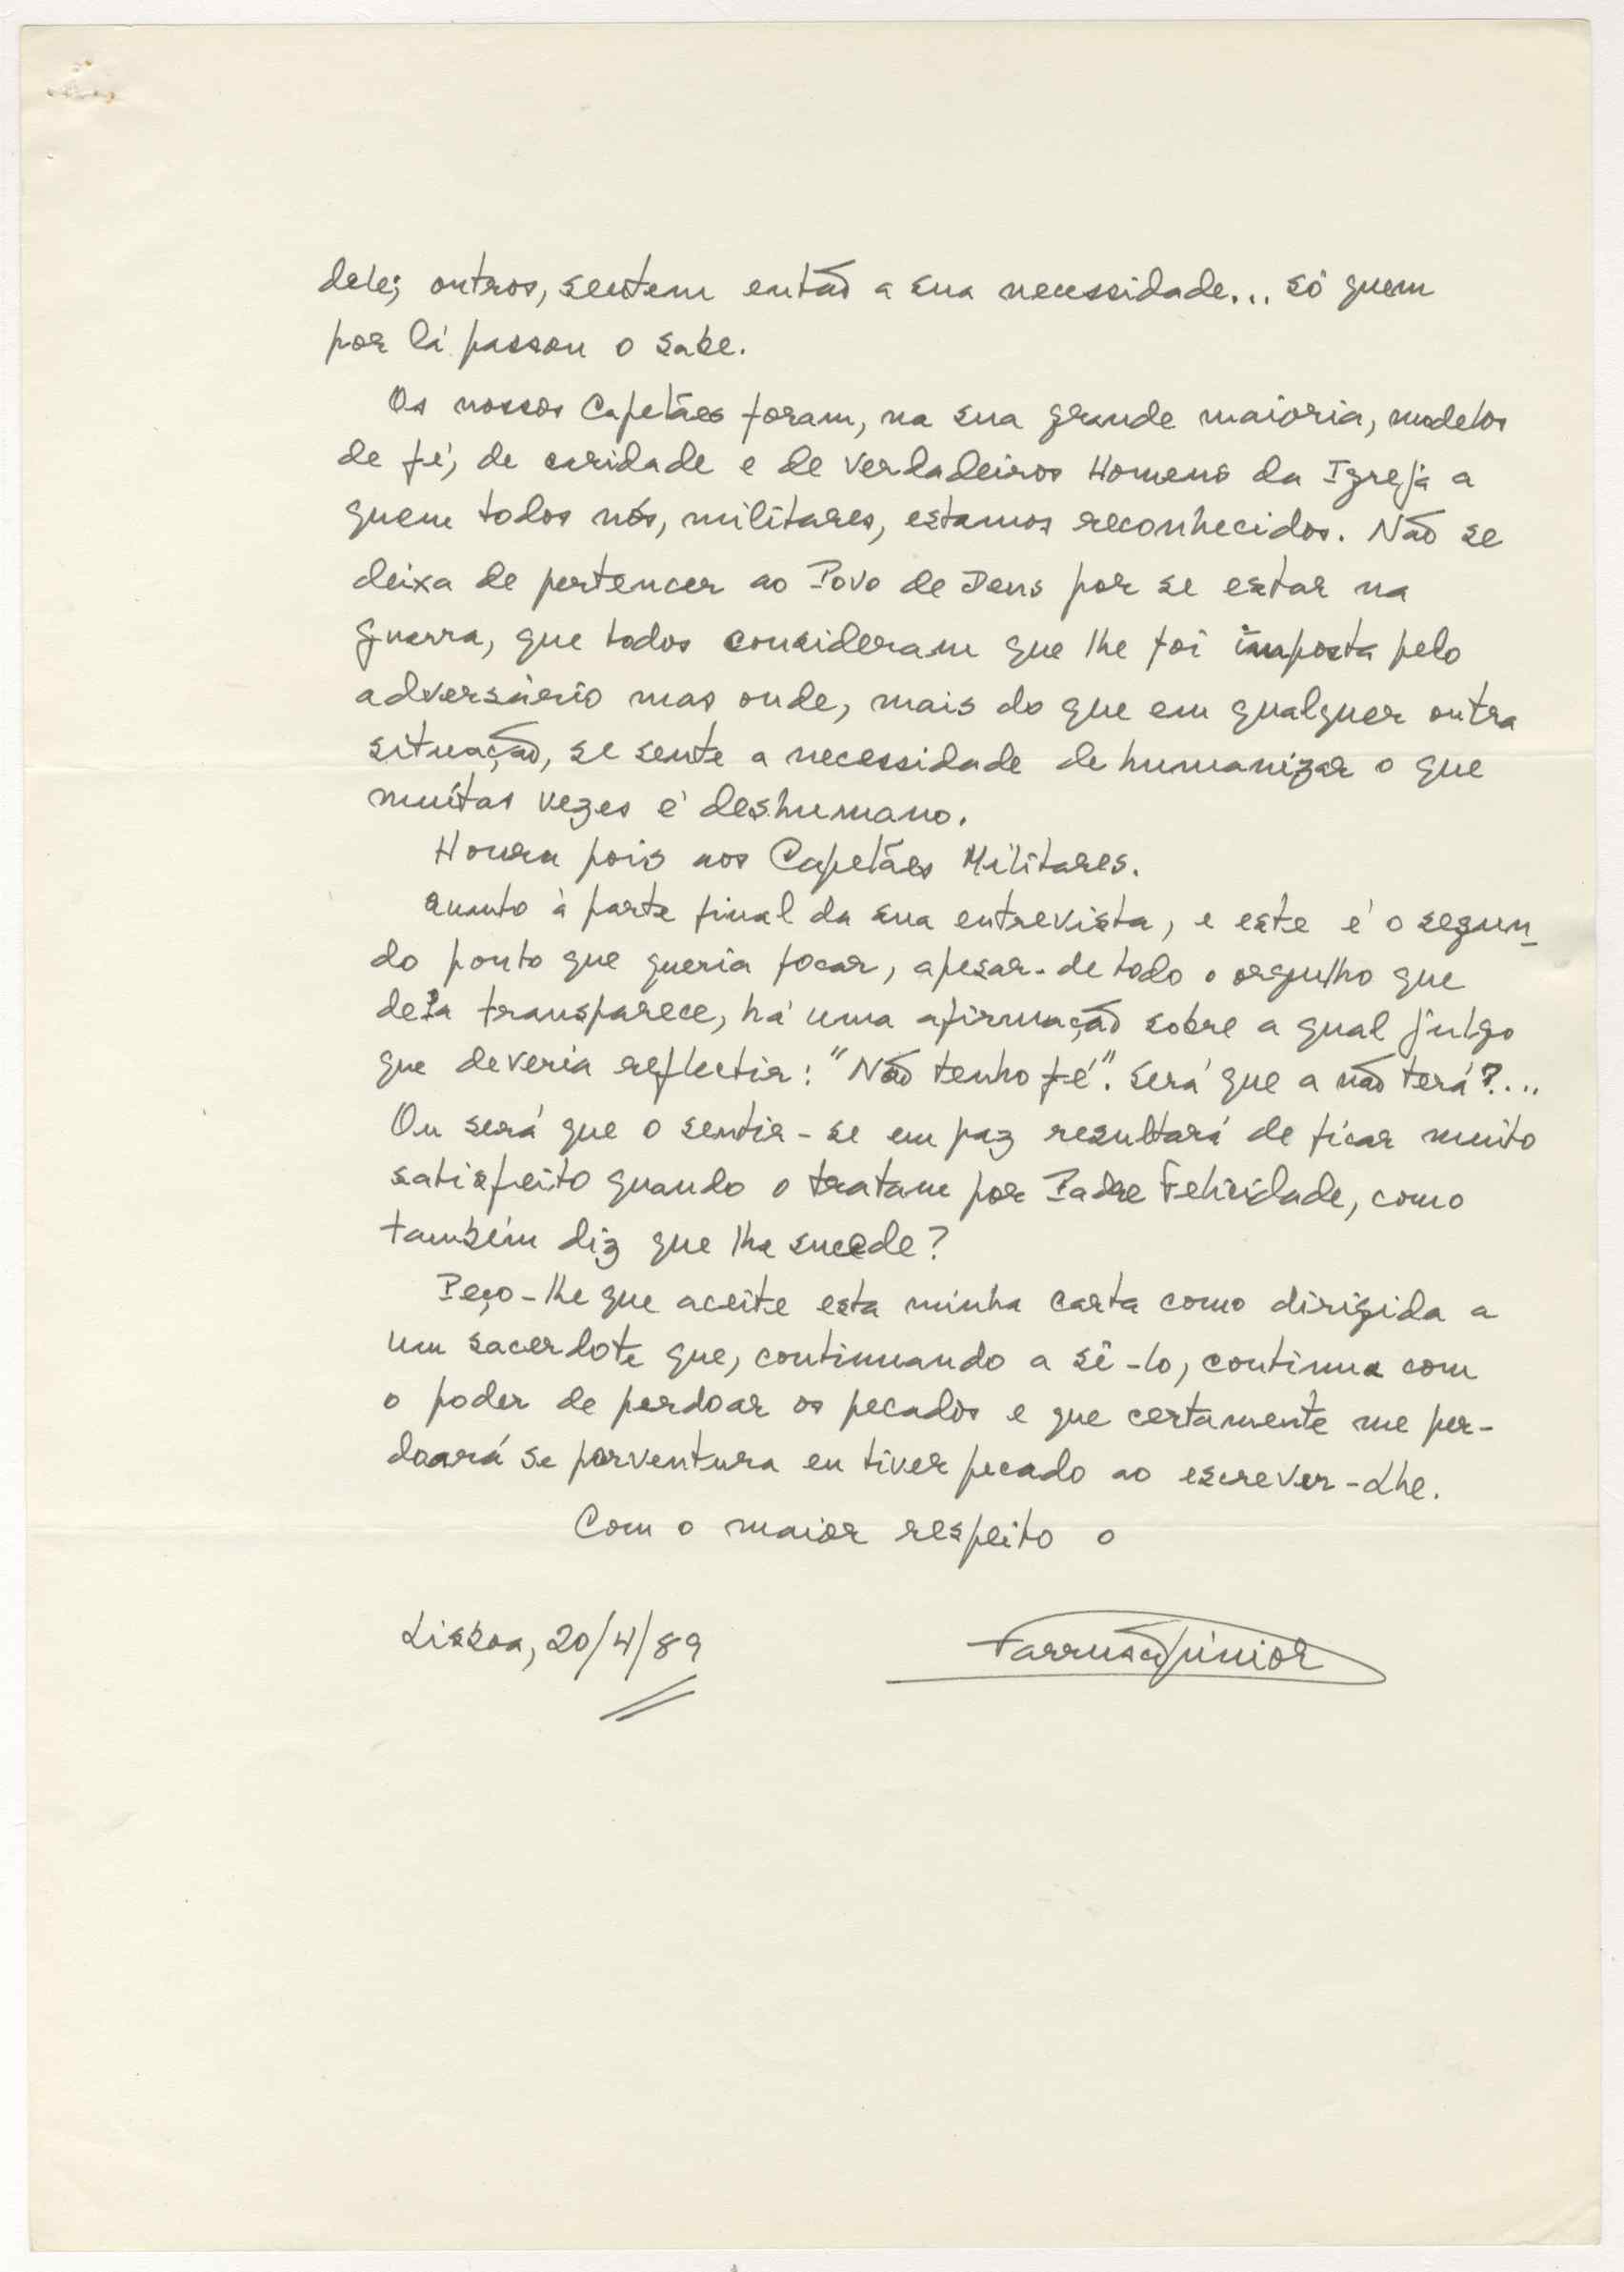 dele; outros, sentem então a sua necessidade... só quem
por lá passou o sabe.
Os nossos Capelães foram, na sua grande maioria, modelos
de fé, de caridade e de verdadeiros Homens da Igreja a
quem todos nós, militares, estamos reconhecidos. Não se
deixa de pertencer ao Povo de Deus por se estar na
guerra, que todos consideram que lhe foi imposta pelo
adversário mas onde, mais do que em qualquer outra
situação, se sente a necessidade de humanizar o que
muitas vezes é deshumano.
Honra pois aos Capelães Militares.
Quanto à parte final da sua entrevista, e este é o segun-
do ponto que queria focar, apesar de todo o orgulho que
dela transparece, há uma afirmação sobre a qual julgo
que deveria reflectir: "Não tenho fé". Será que a não terá?...
Ou será que o sentir-se em paz resultará de ficar muito
satisfeito quando o tratam por Padre Felicidade, como
também diz que lhe sucede?
Peço-lhe que aceite esta minha carta como dirigida a
um sacerdote que, continuando a sê-lo, continua com
o poder de perdoar os pecados e que certamente me per-
doará se porventura eu tiver pecado ao escrever-lhe.
Com o maior respeito o
Lisboa, 20/4/89
Júnior